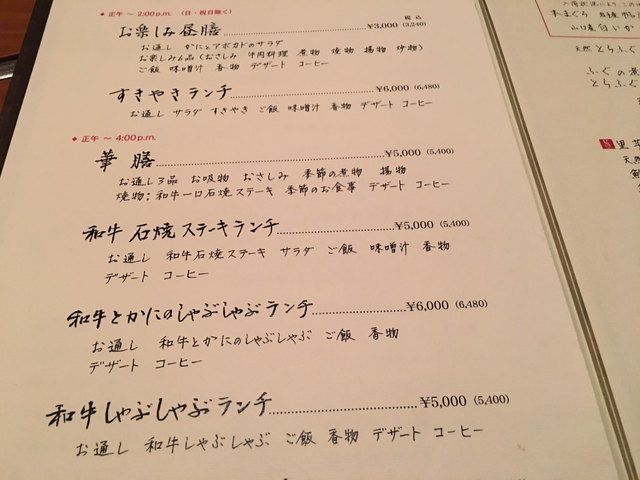 ◆ 正午 ～ 2:00p.m. （日・祝日除く）
税込
お楽しみ昼膳 ¥3,000 (3,240)
お通し かにとアボカドのサラダ
お楽しみ6品（おさしみ 牛肉料理 煮物 焼物 揚物 炒物）
ご飯 味噌汁 香物 デザート コーヒー
すきやきランチ ¥6,000 (6,480)
お通し サラダ すきやき ご飯 味噌汁 香物 デザート コーヒー
◆ 正午 ～ 4:00p.m.
華膳 ¥5,000 (5,400)
お通し3品 お吸物 おさしみ 季節の煮物 揚物
焼物：和牛一口石焼ステーキ 季節のお食事 デザート コーヒー
和牛石焼ステーキランチ ¥5,000 (5,400)
お通し 和牛石焼ステーキ サラダ ご飯 味噌汁 香物
デザート コーヒー
和牛とかにのしゃぶしゃぶランチ ¥6,000 (6,480)
お通し 和牛とかにのしゃぶしゃぶ ご飯 香物
デザート コーヒー
和牛しゃぶしゃぶランチ ¥5,000 (5,400)
お通し 和牛しゃぶしゃぶ ご飯 香物 デザート コーヒー
本まぐろ
天然 とらふぐ
ふぐの煮
とらふぐ
天然